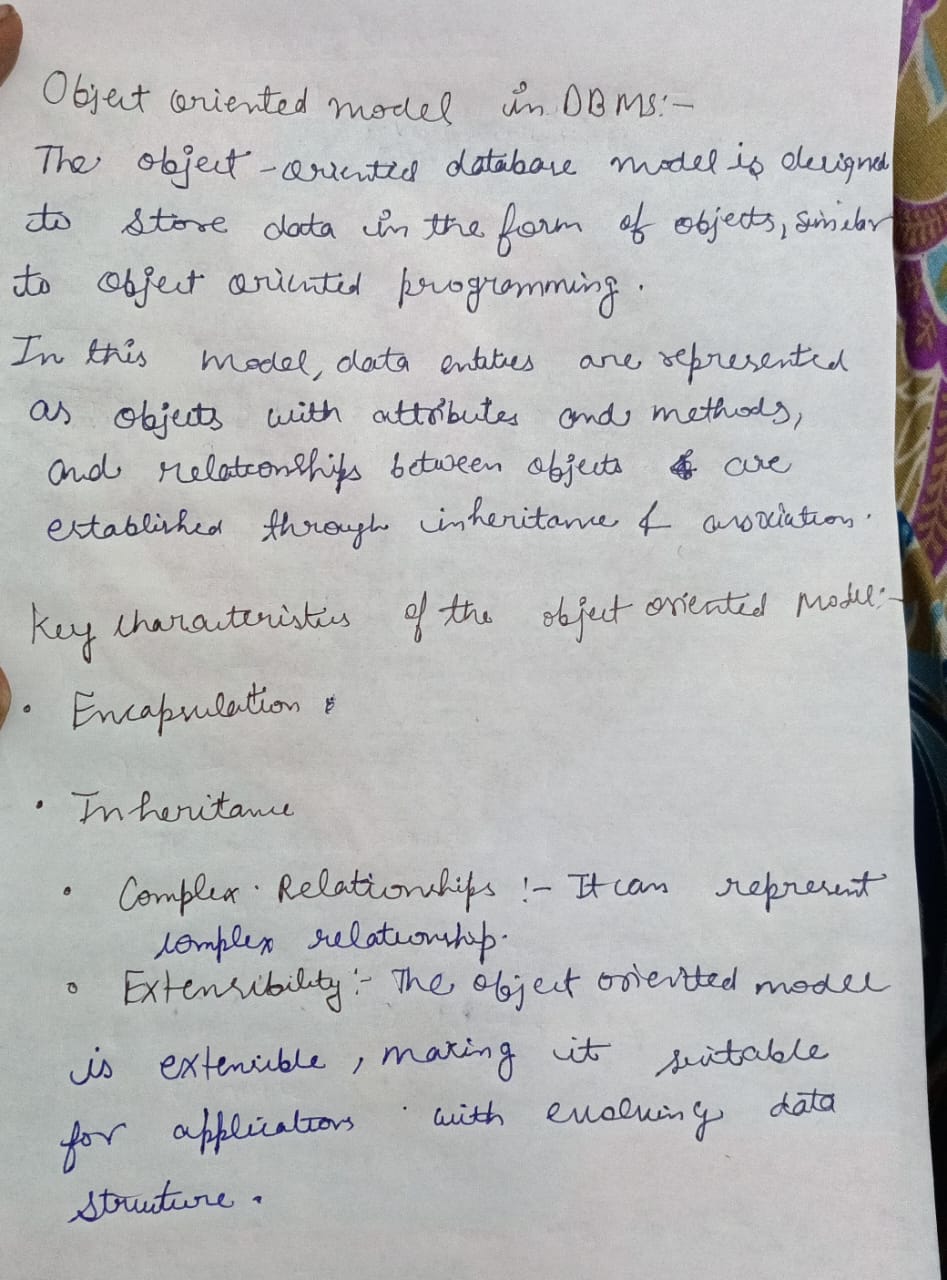 Object oriented model in DBMS:-
The object-oriented database model is designed
to store data in the form of objects, similar
to object oriented programming.
In this model, data entities are represented
as objects with attributes and methods,
and relationships between objects are
established through inheritance & association.
Key characteristics of the object oriented Model:-
• Encapsulation
• Inheritance
• Complex Relationships :- It can represent
complex relationship.
• Extensibility :- The object orientted model
is extensible, making it suitable
for applications with evolving data
structure.